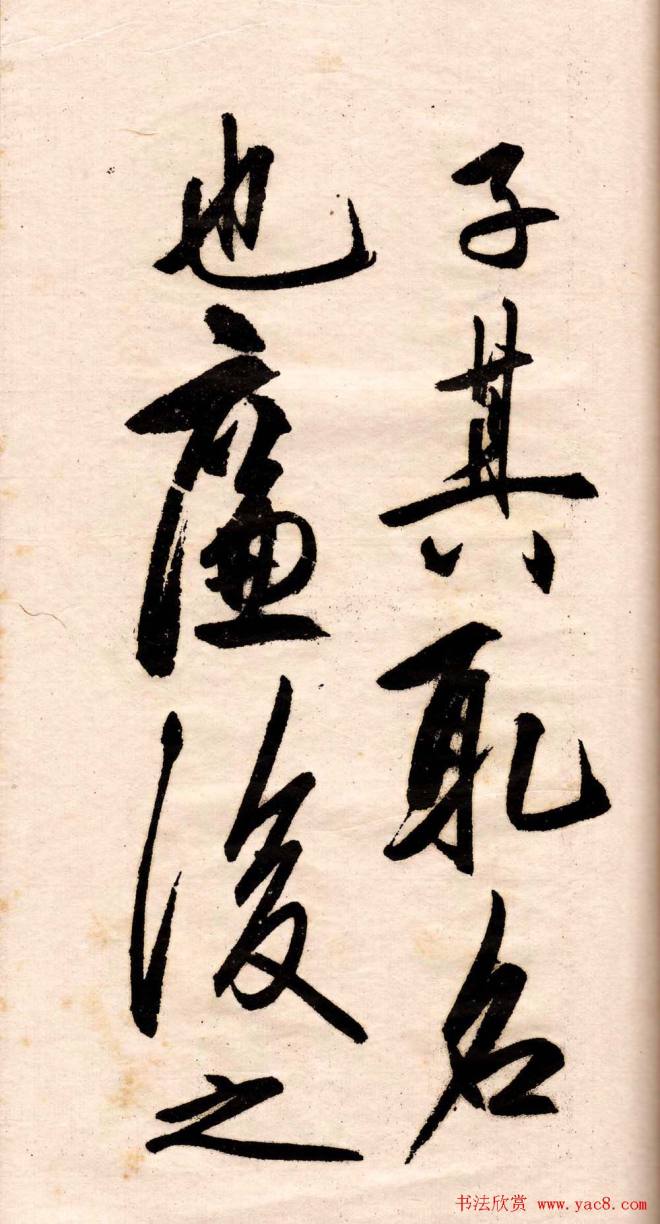 子其取名
也廉後之
书法欣赏 www.yac8.com